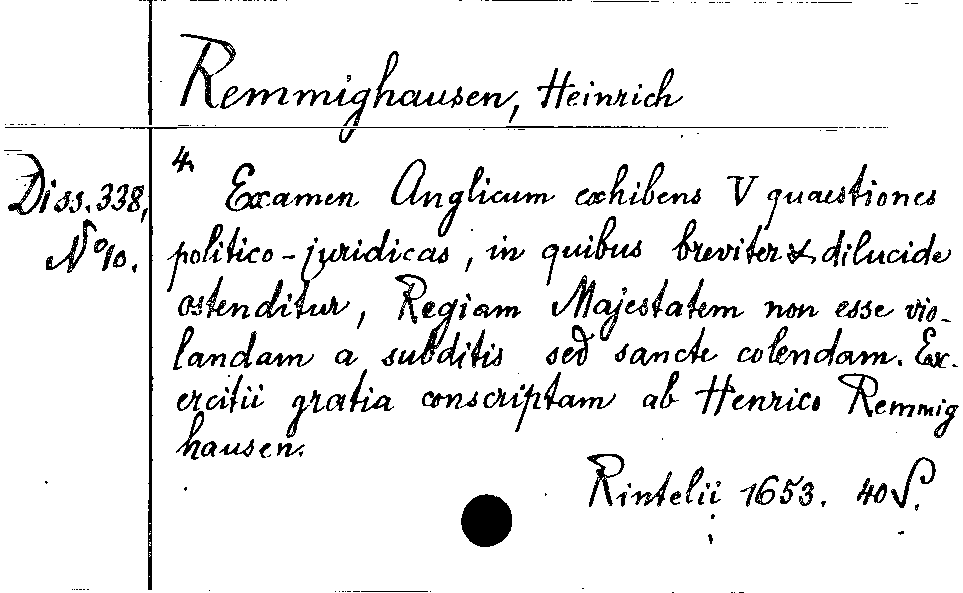 Remmighausen, Heinrich
Diss. 338,
No 10.
4.
Examen Anglicum exhibens V quaestiones
politico-juridicas, in quibus breviter & dilucide
ostenditur, Regiam Majestatem non esse vio-
landam a subditis sed sancte colendam. Ex-
ercitii gratia conscriptam ab Henrico Remmig
hausen.
Rintelii 1653. 40 S.